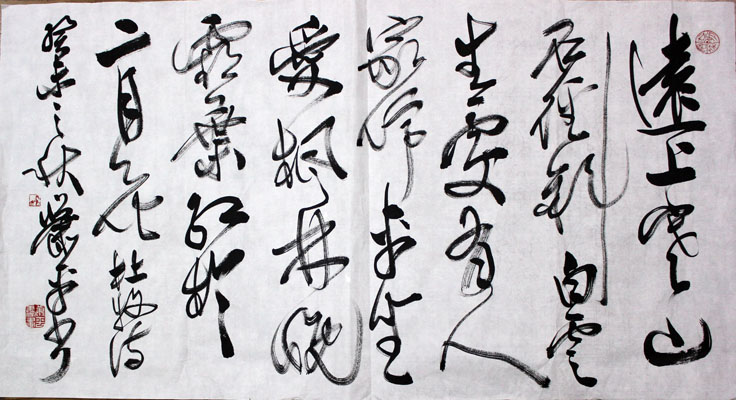 遠上寒山
石徑斜白雲
生處有人
家停車坐
愛楓林晚
霜葉紅於
二月花 杜牧詩
癸未之秋 平书